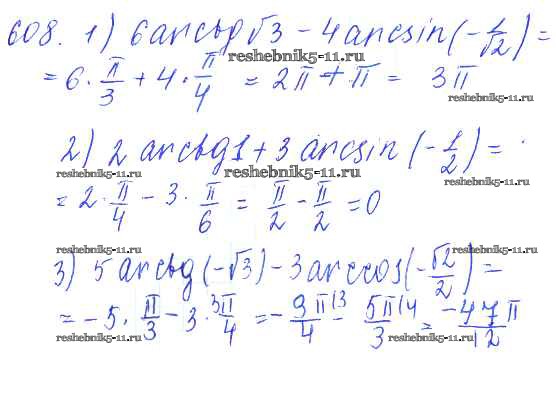 608. 1) 6 arctg √3 - 4 arcsin (-1/√2) =
reshebnik5-11.ru reshebnik5-11.ru
= 6 · π/3 + 4 · π/4 = 2π + π = 3π
reshebnik5-11.ru
2) 2 arctg 1 + 3 arcsin (-1/2) =
reshebnik5-11.ru reshebnik5-11.ru
= 2 · π/4 - 3 · π/6 = π/2 - π/2 = 0
reshebnik5-11.ru reshebnik5-11.ru
3) 5 arctg (-√3) - 3 arccos (-√2/2) =
= -5 · π/3 - 3 · 3π/4 = -9π/4 |3 - 5π/3 |4 = -47π/12
reshebnik5-11.ru reshebnik5-11.ru reshebnik5-11.ru